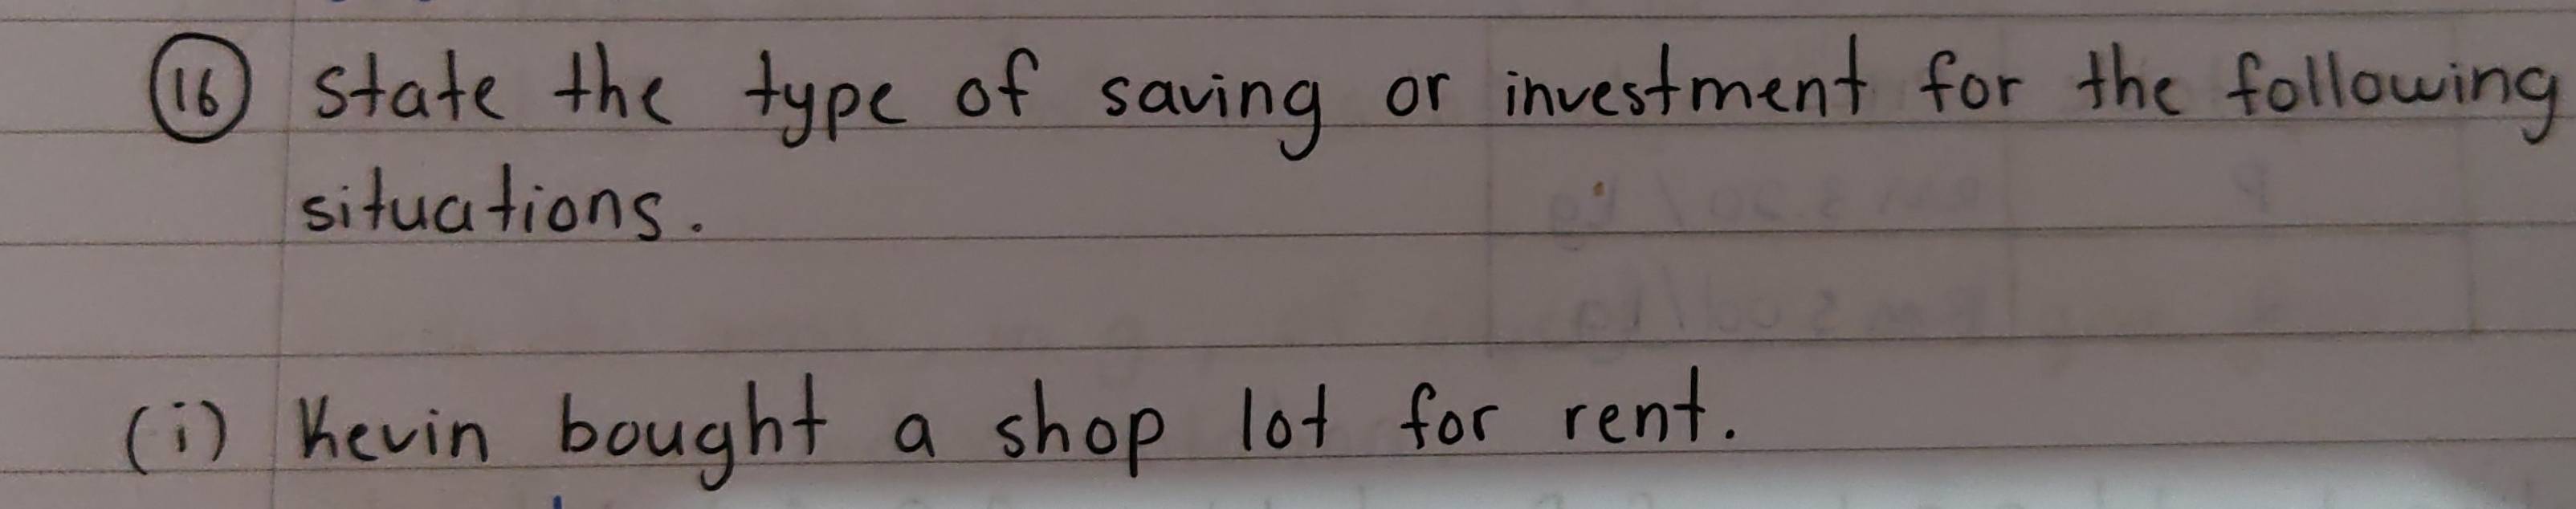 16 State the type of saving or investment for the following
situations.
(i) Kevin bought a shop lot for rent.